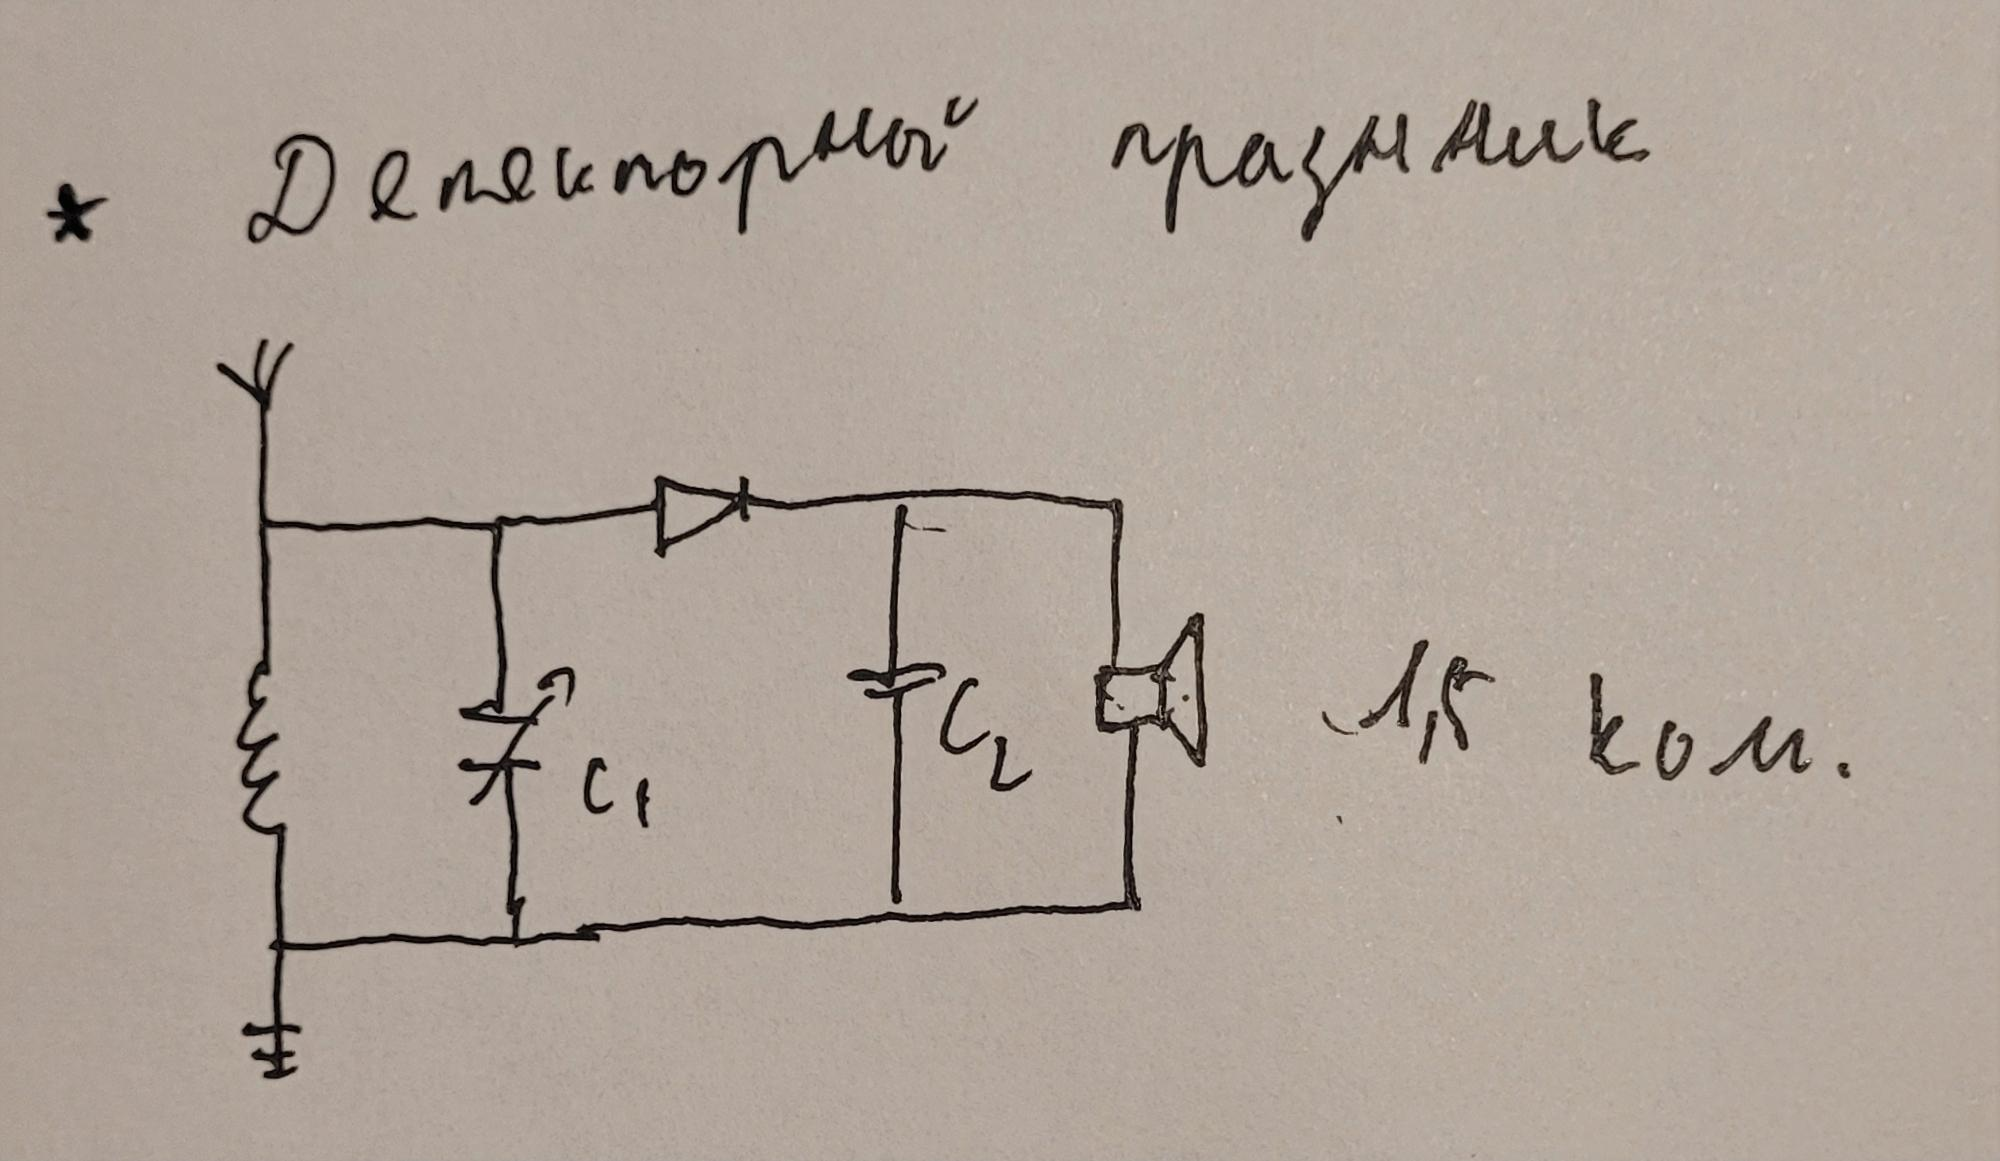 * Детекторный празнник
C1
C2
1,5 ком.